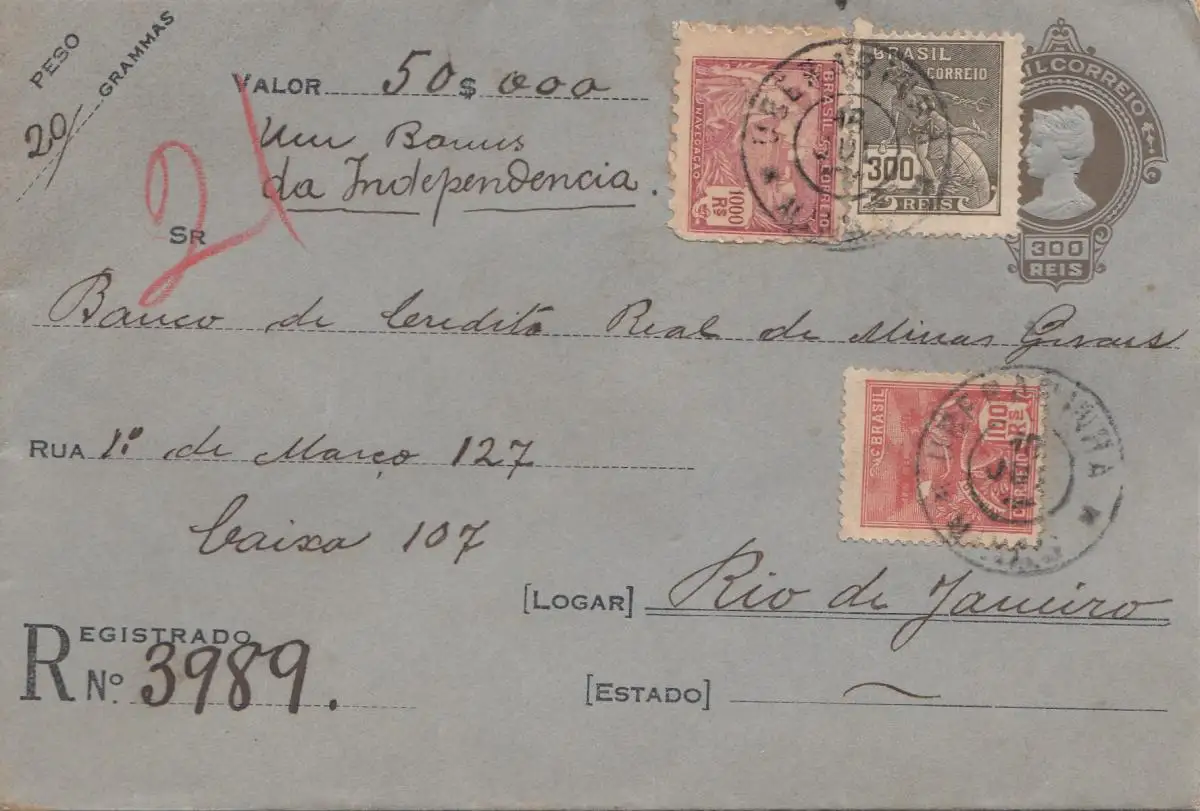 PESO
20 GRAMMAS
VALOR 50$000
Um Bonus
da Independencia.
21
SR
Banco de Credito Real de Minas Geraes
RUA 1º de Março 127
Caixa 107
[LOGAR] Rio de Janeiro
[ESTADO] ~
REGISTRADO
R Nº. 3989.
BRASIL CORREIO
NAVEGAÇÃO
1000 RS
BRASIL
CORREIO
300
REIS
BRASIL CORREIO
300
REIS
BRASIL
100 RS
CORREIO
UBERABINHA